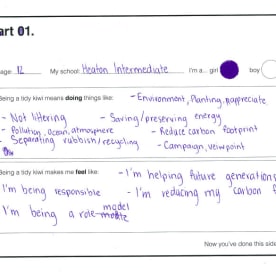 art 01.
age: 12 My school: Heaton Intermediate I'm a... girl boy
Being a tidy kiwi means doing things like: - Environment, Planting, appreciate
- Not littering - Saving/preserving energy
- Pollution, ocean, atmosphere - Reduce carbon footprint
- Separating rubbish/recycling - Campaign, viewpoint
Being a tidy kiwi makes me feel like: - I'm helping future generations
I'm being responsible - I'm reducing my carbon f
I'm being a role-model
Now you've done this side